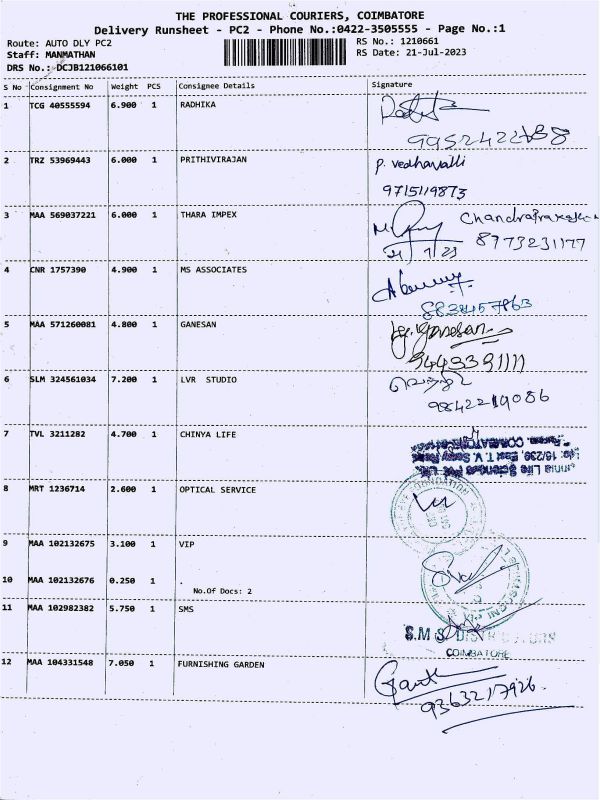 THE PROFESSIONAL COURIERS, COIMBATORE
Delivery Runsheet - PC2 - Phone No.:0422-3505555 - Page No.:1
Route: AUTO DLY PC2 RS No.: 1210661
Staff: MANMATHAN RS Date: 21-Jul-2023
DRS No.: DCJB121066101
S No Consignment No Weight PCS Consignee Details Signature
1 TCG 40555594 6.900 1 RADHIKA
2 TRZ 53969443 6.000 1 PRITHIVIRAJAN P. vedhavalli
9715119873
3 MAA 569037221 6.000 1 THARA IMPEX
8973231177
4 CNR 1757390 4.900 1 MS ASSOCIATES
8834457863
5 MAA 571260081 4.800 1 GANESAN
9443391111
6 SLM 324561034 7.200 1 LVR STUDIO
9842219086
7 TVL 3211282 4.700 1 CHINYA LIFE
8 MRT 1236714 2.600 1 OPTICAL SERVICE
9 MAA 102132675 3.100 1 VIP
10 MAA 102132676 0.250 1
No.Of Docs: 2
11 MAA 102982382 5.750 1 SMS
COIMBATORE
12 MAA 104331548 7.050 1 FURNISHING GARDEN
9363217926